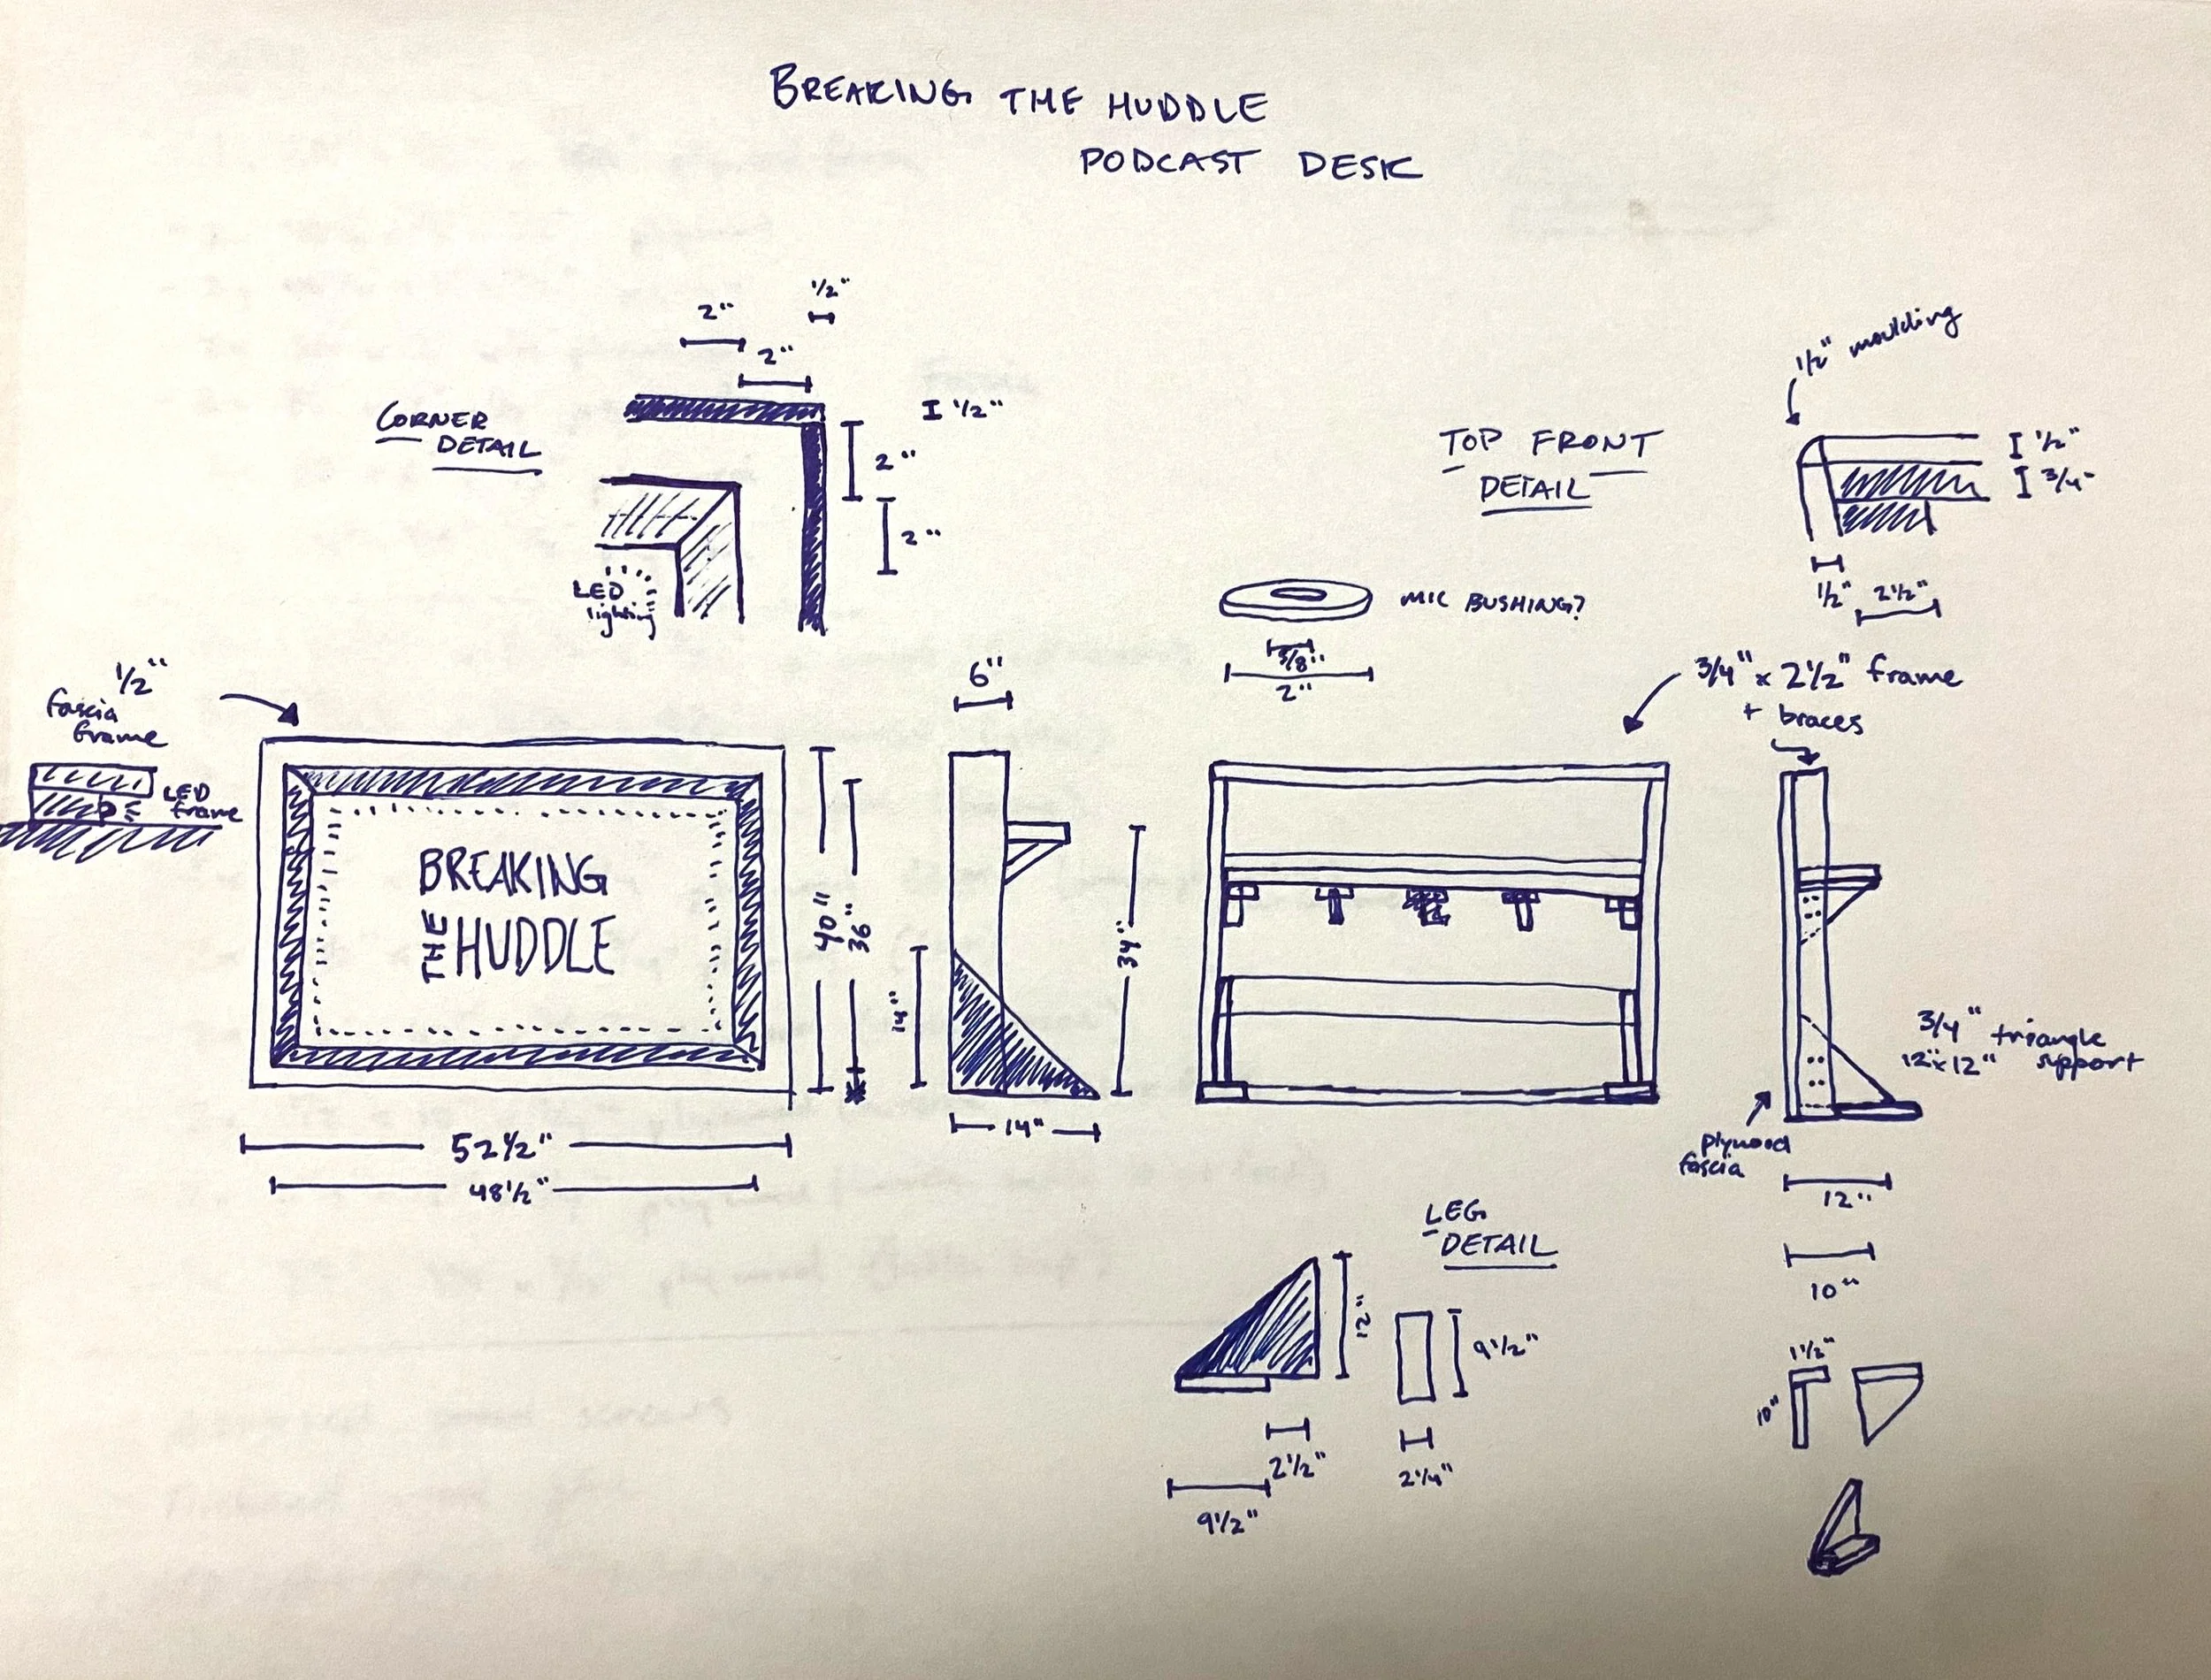 BREAKING THE HUDDLE
PODCAST DESK
1/2"
2"
2"
CORNER
DETAIL
I 1/2"
2"
2"
LED
lighting
1/2" moulding
TOP FRONT
DETAIL
1/2"
3/4"
1/2"
2 1/2"
MIC BUSHING?
5/8"
2"
1/2"
fascia
frame
LED
frame
BREAKING
THE HUDDLE
40"
36"
52 1/2"
48 1/2"
6"
14"
34"
14"
3/4" x 2 1/2" frame
+ braces
3/4" triangle
12" x 12" support
plywood
fascia
12"
10"
LEG
DETAIL
12"
9 1/2"
2 1/2"
2 1/4"
9 1/2"
1 1/2"
10"